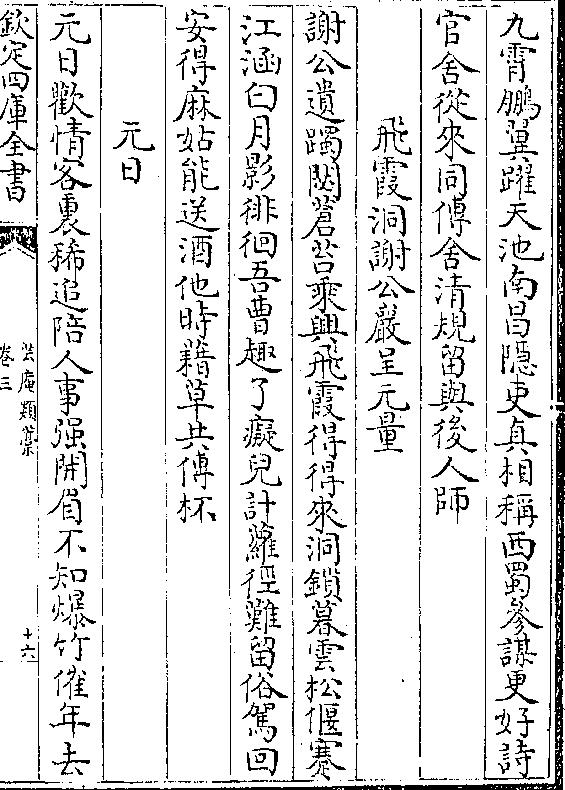 九霄鵬翼躍天池南昌隠吏真相稱西蜀參謀更好詩
官舍從來同傳舍清規留與後人師
飛霞洞謝公巖呈元量
謝公遺躅閟蒼苔乘興飛霞得得來洞鎖暮雲松偃蹇
江涵白月影徘徊吾曹趣了癡兒計蘿徑難留俗駕回
安得麻姑能送酒他時藉草共傳杯
元日
元日歡情客裏稀追陪人事强開眉不知爆竹催年去
欽定四庫全書
卷三
十六